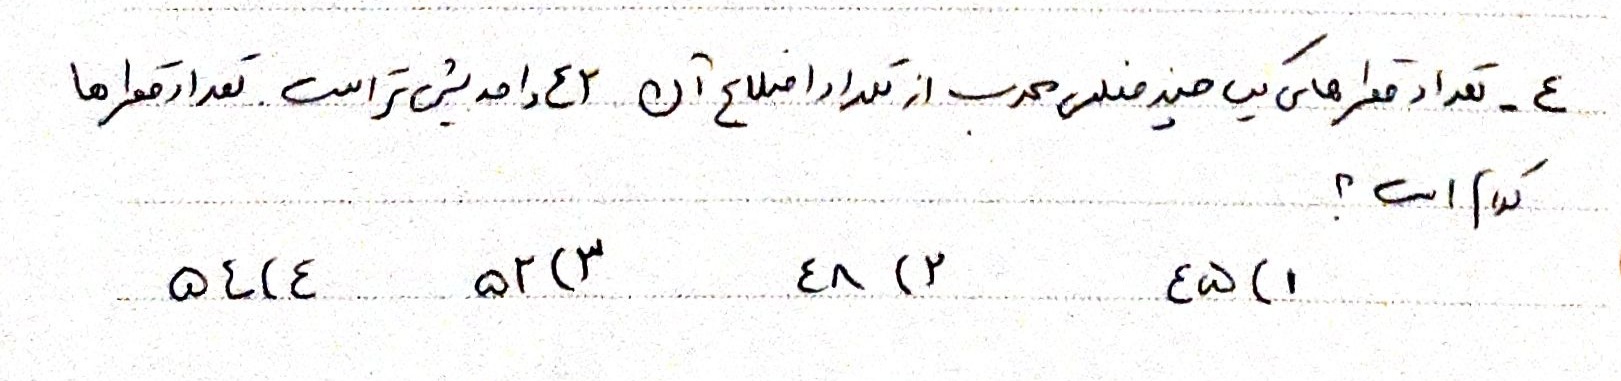 ٤ - تعداد قطرهای یک چند ضلعی محدب از تعداد اضلاع آن ٤۲ واحد بیش‌تر است. تعداد قطرها
کدام است؟
۱) ٤۵ ۲) ٤۸ ۳) ۵۲ ٤) ۵٤